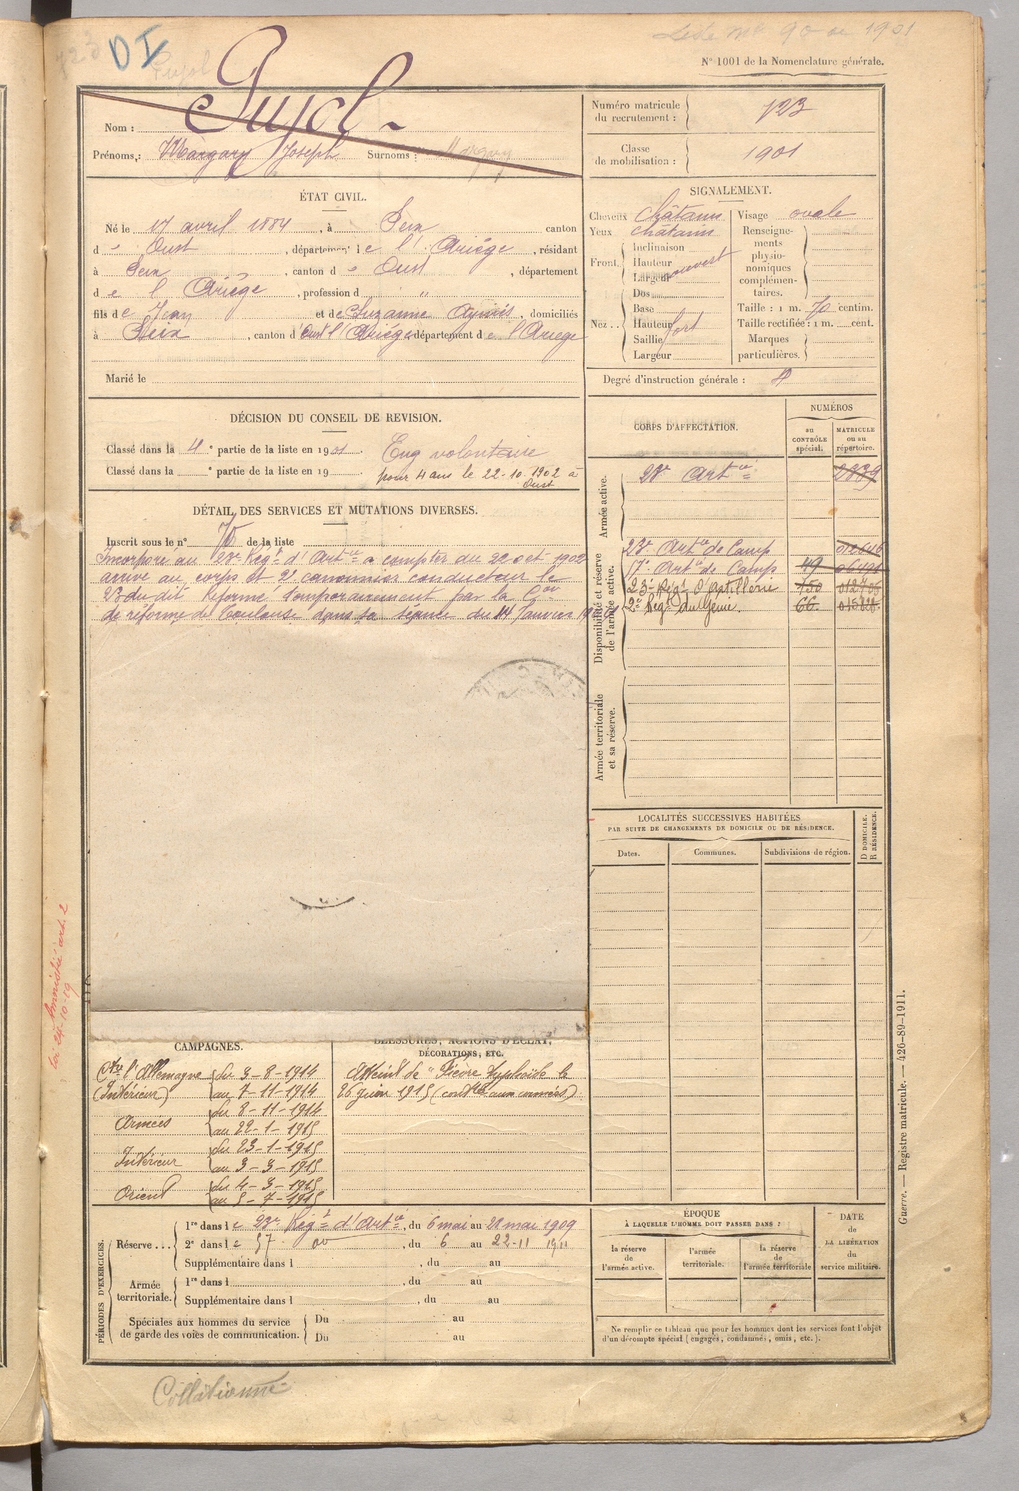 Liste N° 90 de 1901
N° 1001 de la Nomenclature générale.
DI
Nom : Pujol
Prénoms : Margary Joseph Surnoms : Margary
Numéro matricule du recrutement : 123
Classe de mobilisation : 1901
ÉTAT CIVIL.
Né le 17 avril 1884, à Seix canton
d Oust, département de l'Ariège, résidant
à Seix, canton d Oust, département
de l'Ariège, profession d "
fils de Jean et de Suzanne, domiciliés
à Seix, canton d'Oust l'Ariège département de l'Ariège
Marié le
SIGNALEMENT.
Cheveux châtains
Yeux châtains
Front, Inclinaison
Hauteur
Largeur
ouvert
Nez .. Dos
Base
Hauteur
Saillie
Largeur
fort
Visage ovale
Renseignements physionomiques complémentaires.
Taille : 1 m. 70 centim.
Taille rectifiée : 1 m. cent.
Marques particulières.
Degré d'instruction générale :
DÉCISION DU CONSEIL DE REVISION.
Classé dans la 4e partie de la liste en 1901 Eng volontaire
Classé dans la e partie de la liste en 19 pour 4 ans le 22-10-1902 à
Oust
DÉTAIL DES SERVICES ET MUTATIONS DIVERSES.
Inscrit sous le n° 76 de la liste
Incorporé au 23e Régt d'Artie à compter du 22 oct 1902
arrivé au corps et 2e canonnier conducteur le
23 du dit Réformé temporairement par la Con
de réforme de Toulouse dans sa séance du 14 Janvier
CORPS D'AFFECTATION.
NUMÉROS
au CONTRÔLE spécial.
MATRICULE ou au répertoire.
Armée active.
23e Artie 2839
Disponibilité et réserve de l'armée active.
23e Artie de Camp
17e Artie de Camp 49
23e Régt d'Artillerie 750
2e Régt du Génie. 66
Armée territoriale et sa réserve.
LOCALITÉS SUCCESSIVES HABITÉES
PAR SUITE DE CHANGEMENTS DE DOMICILE OU DE RÉSIDENCE.
Dates. Communes. Subdivisions de région. D DOMICILE. R RÉSIDENCE.
Amnistié art. 2
loi 24-10-19
CAMPAGNES.
Ctre l'Allemagne du 3-8-1914
(Intérieur) au 7-11-1914
Armées du 8-11-1914
au 22-1-1915
Intérieur du 23-1-1915
au 3-3-1915
Orient du 4-3-1915
au 5-7-1915
BLESSURES, ACTIONS D'ÉCLAT,
DÉCORATIONS, ETC.
Atteint de "Fièvre typhoïde le
26 juin 1915 (contractée aux armées)
PÉRIODES D'EXERCICES.
Réserve... 1re dans le 23e Régt d'Artie, du 6 mai au 28 mai 1909
2e dans le 57 do, du 6 au 22-11 1911
Supplémentaire dans l , du au
Armée territoriale. 1re dans l , du au
Supplémentaire dans l , du au
Spéciales aux hommes du service de garde des voies de communication. Du au
Du au
ÉPOQUE
À LAQUELLE L'HOMME DOIT PASSER DANS :
la réserve de l'armée active.
l'armée territoriale.
la réserve de l'armée territoriale
DATE DE LA LIBÉRATION du service militaire.
Ne remplir ce tableau que pour les hommes dont les services font l'objet
d'un décompte spécial (engagés, condamnés, omis, etc.).
Guerre. — Registre matricule. — 426-89-1911.
Collationné